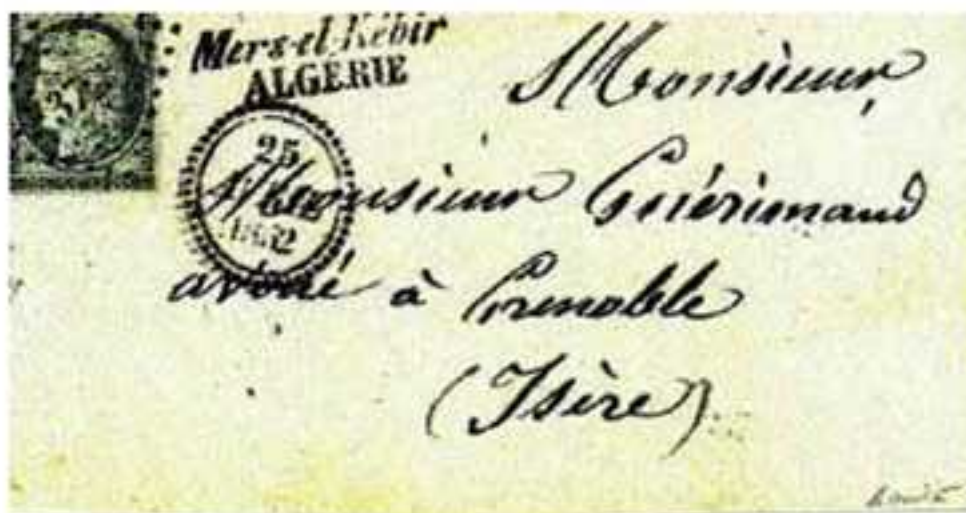 Mers-el-Kébir
ALGERIE
25
1852
Monsieur,
Monsieur Guérimand
avoué à Grenoble
(Isère)